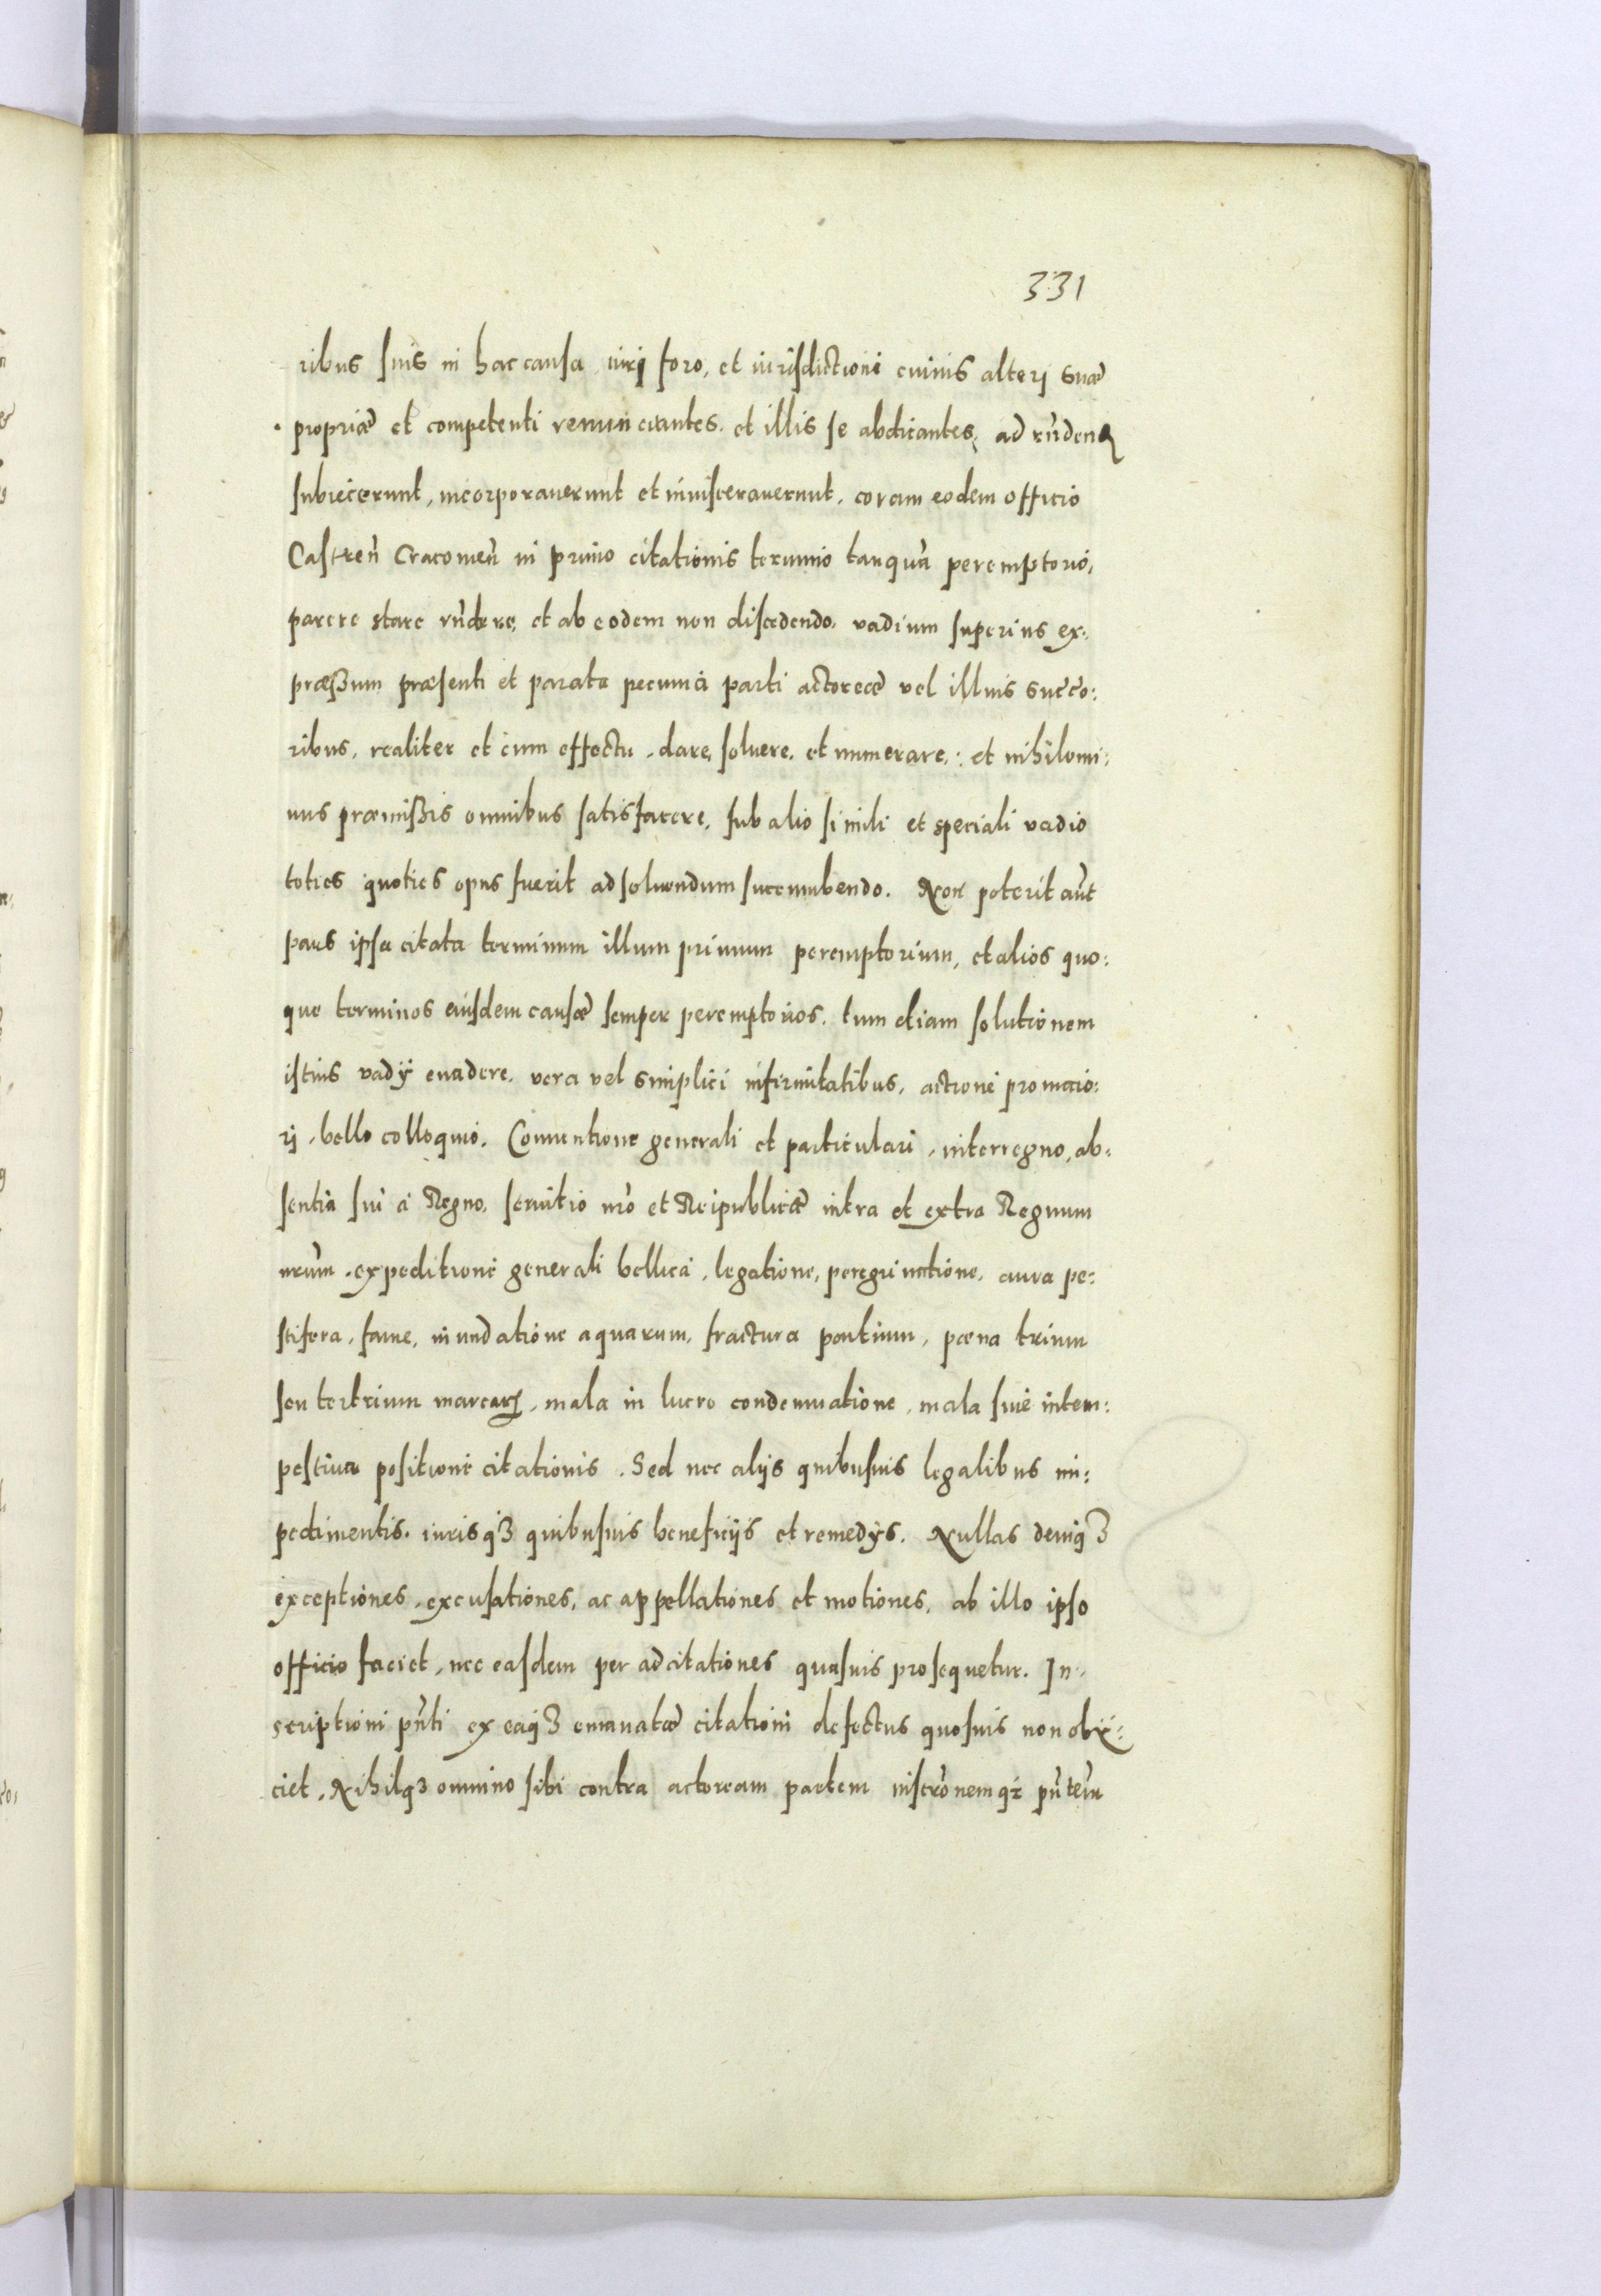 331
ribus suis in hac causa, iuri foro, et iurisdictioni cuiuis alteri suæ
propriæ et competenti renunciantes. et illis se abdicantes, ad rñdenꝶ
subiecerunt, incorporauerunt et inuiscerauerunt, coram eodem officio
Castreñ Cracouieñ in primo citationis termino tanquã peremptorio,
parere stare rñdere, et ab eodem non discedendo, vadium superius ex:
præssum præsenti et parata pecunia parti actoreæ vel illius succo:
ribus, realiter et cum effectu, dare, soluere, et numerare,: et nihilomi:
nus præmissis omnibus satisfacere, sub alio simili et speciali vadio
toties quoties opus fuerit ad soluendum succumbendo. Non poterit aũt
pars ipsa citata terminum illum primum peremptorium, et alios quo:
que terminos eiusdem causæ semper peremptorios, tum etiam solutionem
istius vadÿ euadere, vera vel simplici infirmitatibus, actione pro maio:
ri, bello colloquio, Conuentione generali et particulari, interregno, ab:
sentia sui à Regno, seruitio nr̃o et Reipublicæ intra et extra Regnum
nr̃um, expeditione generali bellica, legatione, peregrinatione, aura pe:
stifera, fame, inundatione aquarum, fractura pontium, pœna trium
seu ter trium marcarꝶ, mala in lucro condemnatione, mala siue intem:
pestiua positione citationis. Sed nec alijs quibusuis legalibus im:
pedimentis, iurisqꝫ quibusuis beneficijs et remedÿs. Nullas deniqꝫ
exceptiones, excusationes, ac appellationes et motiones, ab illo ipso
officio faciet, nec easdem per adcitationes quasuis prosequetur. In:
scriptioni pñti ex eaqꝫ emanatæ citationi defectus quosuis non obij:
ciet, Nihilqꝫ omnino sibi contra actoream partem inscr̃onemqꝫ pñtem